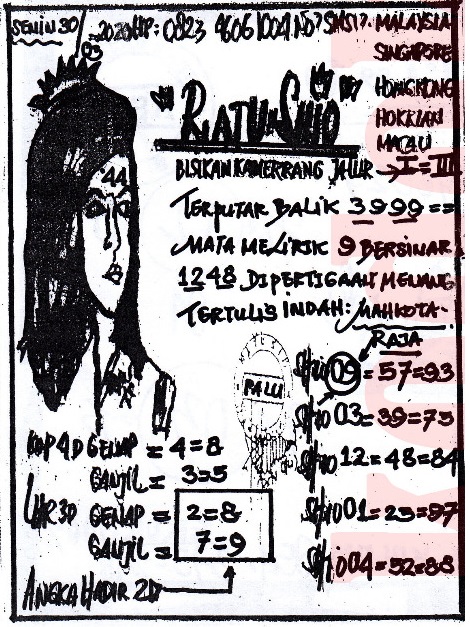 SENIN 30/ -2020 HP: 0823 9606 1004 NO? SMS!?
MALAYSIA
SINGAPORE
HONGKONG
HOKKIAN
MACAU
"RATU SHIO"
BISIKAN KAMERRANG JALUR → I = III
TERPUTAR BALIK 3999 ==
MATA MELIRIK 9 BERSINAR
1248 DIPERTIGAAN MENANG
TERTULIS INDAH: MAHKOTA-
RAJA
44
MYSTIC
PALU
SHIO 09 = 57 = 93
SHIO 03 = 39 = 75
SHIO 12 = 48 = 84
SHIO 01 = 25 = 97
SHIO 04 = 52 = 88
KOP 4D GENAP = 4 = 8
GANJIL = 3 = 5
LHR 3D GENAP = 2 = 8
GANJIL = 7 = 9
ANGKA HADIR 2D